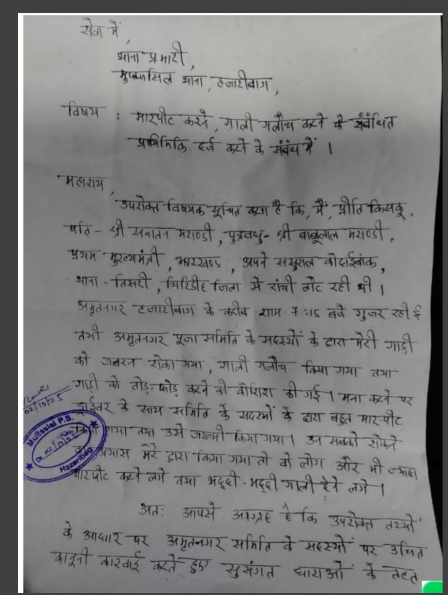 सेवा में,
थाना प्रभारी,
मुफ्फसिल थाना, हजारीबाग,
विषय : मारपीट करने, गाली गलौच करने के संबंधित
प्राथमिकि दर्ज करने के संबंध में ।
महाशय,
उपरोक्त विषयक सूचित करना है कि, मैं, प्रीति किस्कू,
पति - श्री सनातन मराण्डी, पुत्रवधु - श्री बाबूलाल मराण्डी,
प्रथम मुख्यमंत्री, झारखण्ड, अपने ससुराल कोदाईबांक,
थाना - तिसरी, गिरिडीह जिला से रांची लौट रही थी ।
अमृतनगर हजारीबाग के करीब शाम 7:15 बजे गुजर रही
तभी अमृतनगर पूजा समिति के सदस्यों के द्वारा मेरी गाड़ी
को जबरन रोका गया, गाली गलौच किया गया तथा
गाड़ी को तोड़-फोड़ करने की कोशिश की गई । मना करने पर
ड्राईवर के साथ समिति के सदस्यों के द्वारा बहुत मारपीट
गया तथा उसे जख्मी किया गया । उन सबको रोकने
प्रयास मेरे द्वारा किया गया तो वो लोग और भी ज्यादा
मारपीट करने लगे तथा भद्दी-भद्दी गाली देने लगे ।
Muffasial P.S.
Hazaribag
अतः आपसे आग्रह है कि उपरोक्त तथ्यों
के आधार पर अमृतनगर समिति के सदस्यों पर उचित
कानूनी कारवाई करते हुए सुसंगत धाराओं के तहत